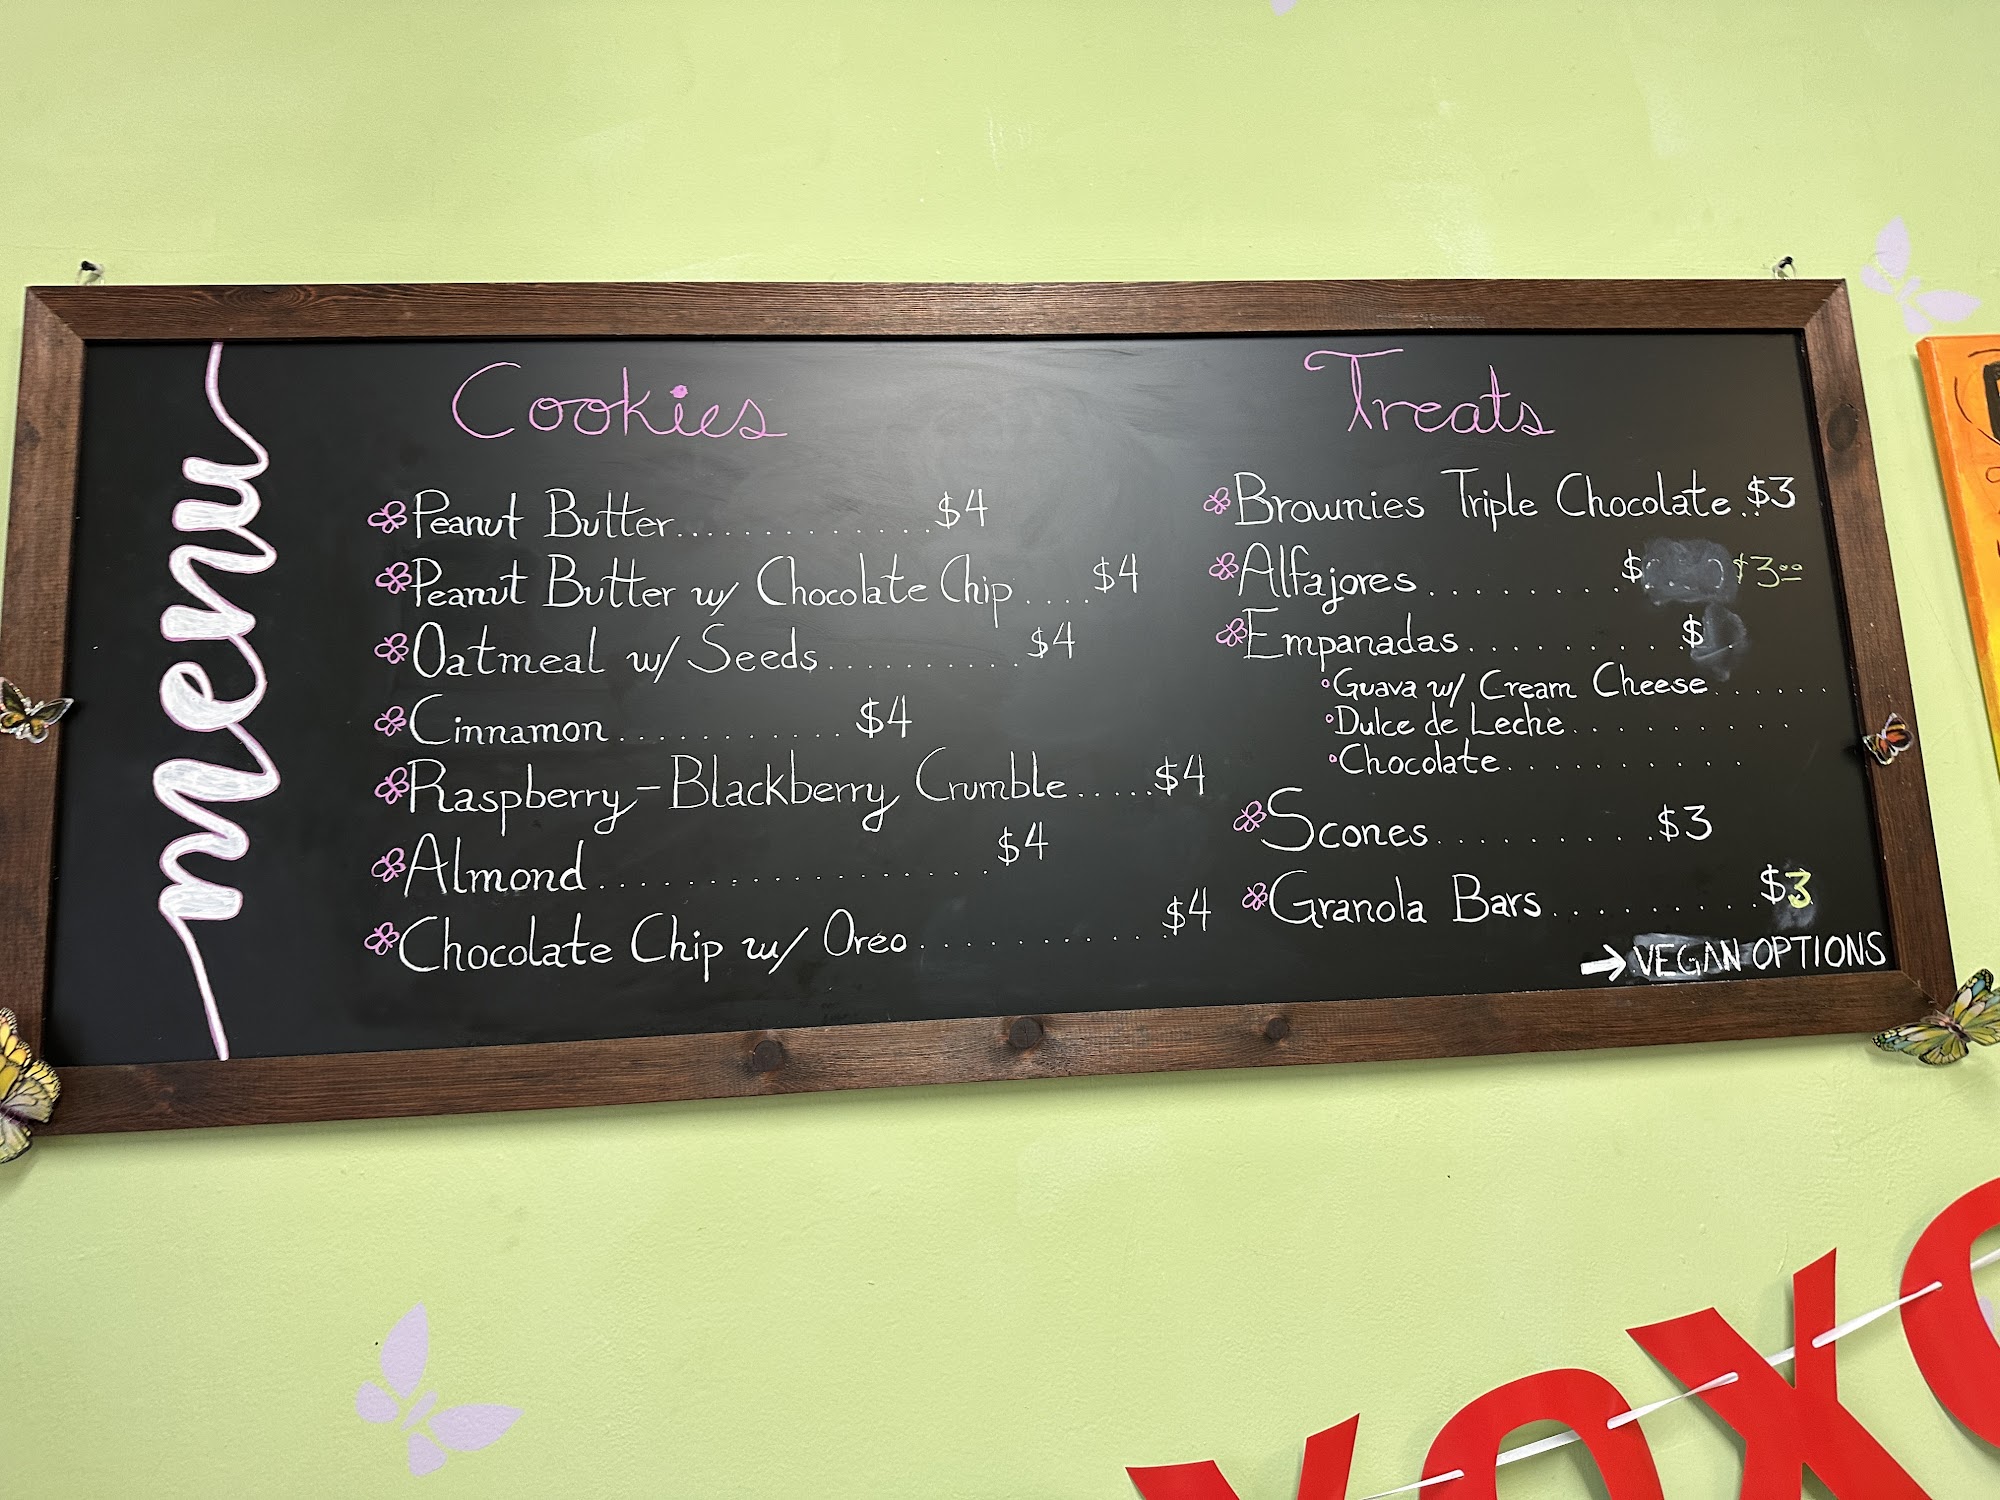 menu
Cookies
Peanut Butter............ $4
Peanut Butter w/ Chocolate Chip.... $4
Oatmeal w/ Seeds.......... $4
Cinnamon............ $4
Raspberry-Blackberry Crumble..... $4
Almond................. $4
Chocolate Chip w/ Oreo.......... $4
Treats
Brownies Triple Chocolate.. $3
Alfajores......... $ $3.00
Empanadas......... $
Guava w/ Cream Cheese......
Dulce de Leche.........
Chocolate..........
Scones......... $3
Granola Bars......... $3
→ VEGAN OPTIONS
XOXO